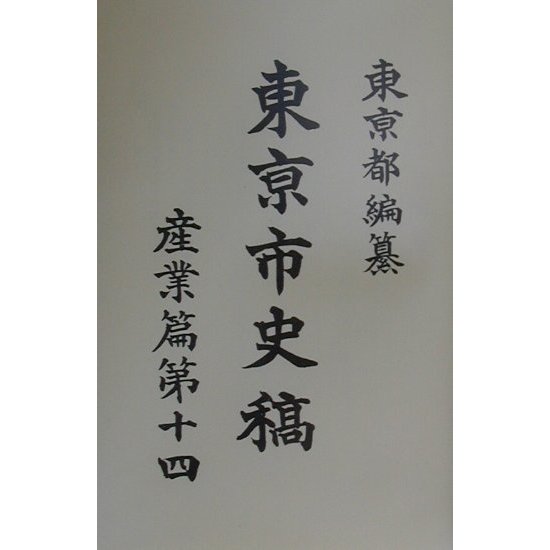 東亰都編纂
東亰市史稿
産業篇第十四